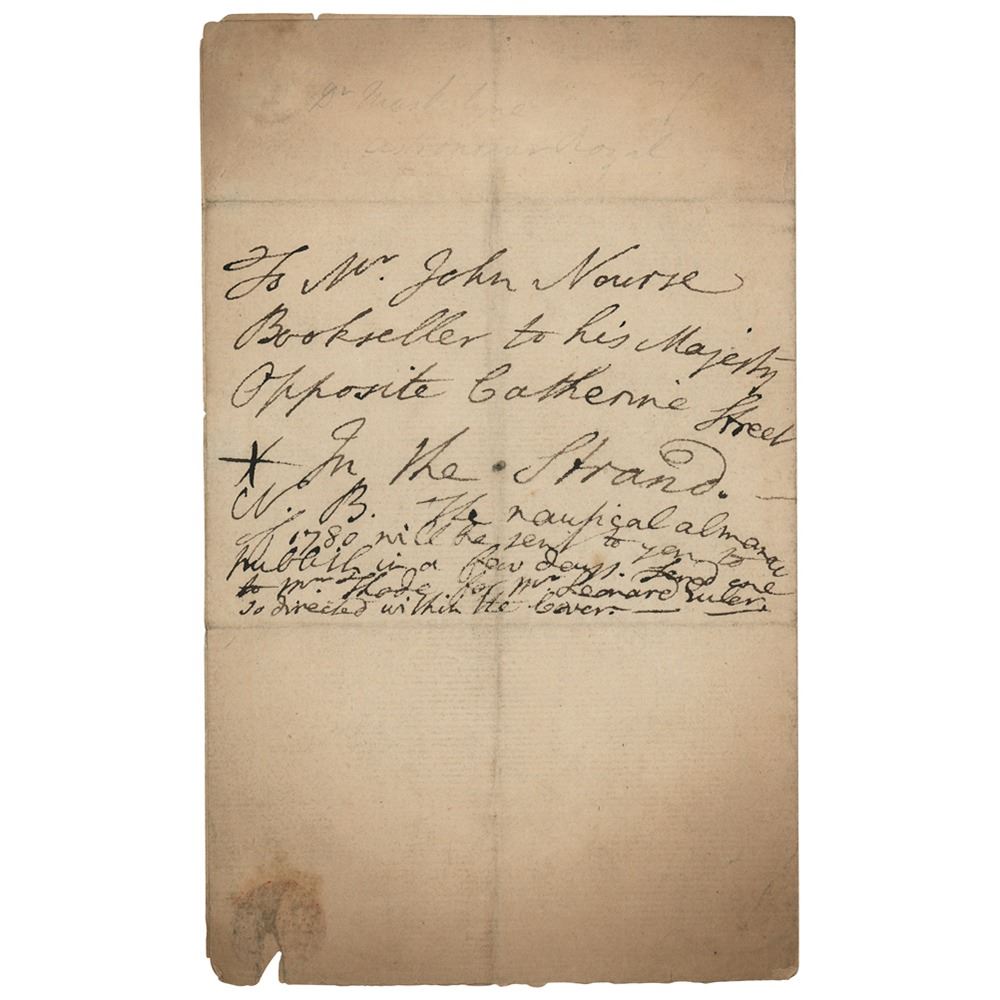 Dr Maskelyne
Astronomer Royal
To Mr. John Nourse
Bookseller to his Majesty
Opposite Catherine Street
X In the Strand.
N. B. The nautical almanac
of 1780 will be sent to you to
publish in a few days. Send one
to Mr for Mr Leonard Euler,
so directed within the Cover.